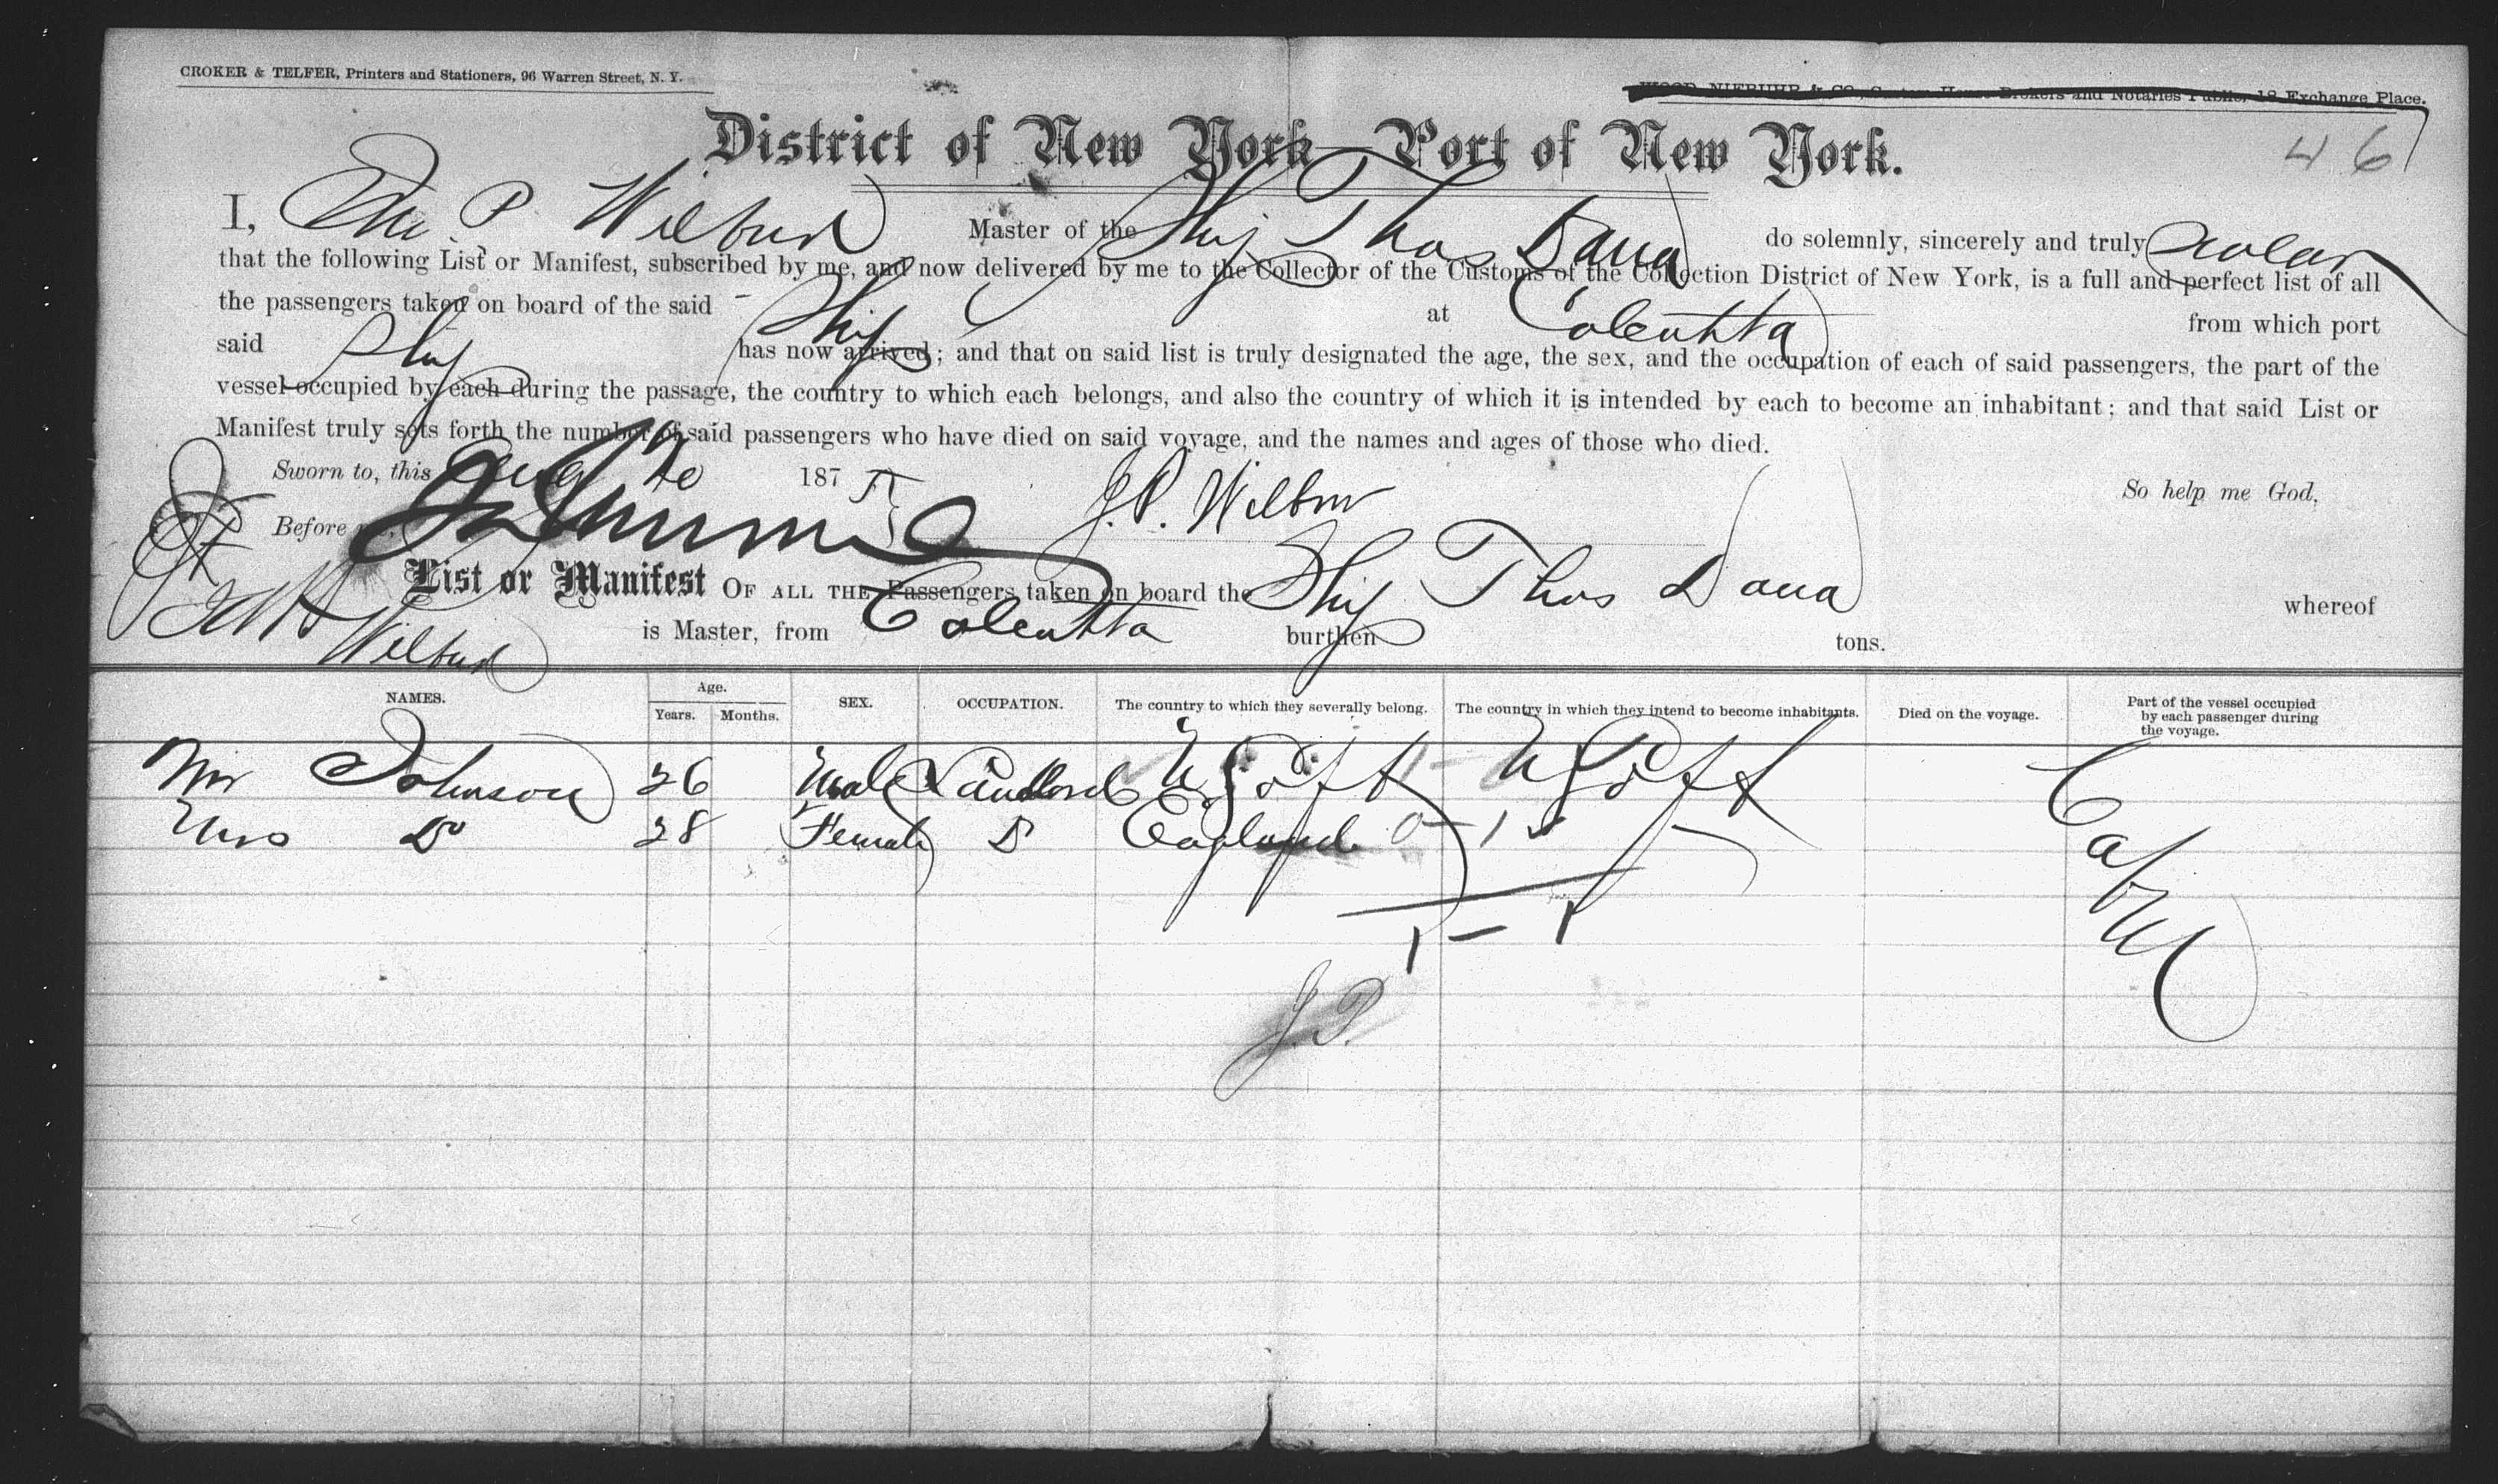 CROKER & TELFER, Printers and Stationers, 96 Warren Street, N. Y.
WOOD, NIEBUHR & CO, Custom House Brokers and Notaries Public, 18 Exchange Place.
District of New York—Port of New York.
46
I, P Wilbur Master of the Ship Thos Dana do solemnly, sincerely and truly swear
that the following List or Manifest, subscribed by me, and now delivered by me to the Collector of the Customs of the Collection District of New York, is a full and perfect list of all
the passengers taken on board of the said Ship at Calcutta from which port
said Ship has now arrived; and that on said list is truly designated the age, the sex, and the occupation of each of said passengers, the part of the
vessel occupied by each during the passage, the country to which each belongs, and also the country of which it is intended by each to become an inhabitant; and that said List or
Manifest truly sets forth the number of said passengers who have died on said voyage, and the names and ages of those who died.
Sworn to, this Aug 1875 So help me God,
Before J. P. Wilbur
List or Manifest OF ALL THE Passengers taken on board the Ship Thos Dana whereof
Wilbur is Master, from Calcutta burthen tons.
NAMES. Age. Years. Months. SEX. OCCUPATION. The country to which they severally belong. The country in which they intend to become inhabitants. Died on the voyage. Part of the vessel occupied by each passenger during the voyage.
Mr Johnson 26 Male Landlord
Mrs Do 28 Female D England 0-1
Cabin
1-1
J.P.